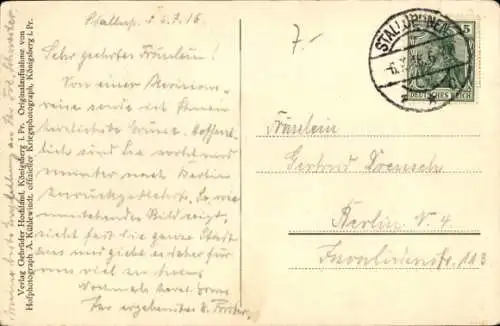 Stallup. d 6.7.16
Sehr geehrtes Fräulein!
Von einer Revisions-
reise sende ich Ihnen
herzlichste Grüße. Hoffent-
lich sind Sie wohl und
munter nach Berlin
zurückgekehrt. So, wie
umstehendes Bild zeigt,
sieht fast die ganze Stadt
aus und giebt es daher für
uns viel zu
Nochmals herzl. Gruss
Ihr ergebenster
Verlag Gebrüder Hochland, Königsberg i. Pr. Originalaufnahme von
Hofphotograph A. Kühlewindt, offizieller Kriegsphotograph, Königsberg i. Pr.
7.-
STALLUPÖNEN
5
DEUTSCHES REICH
Fräulein
Gertrud
Berlin N. 4
Invalidenstr. 113